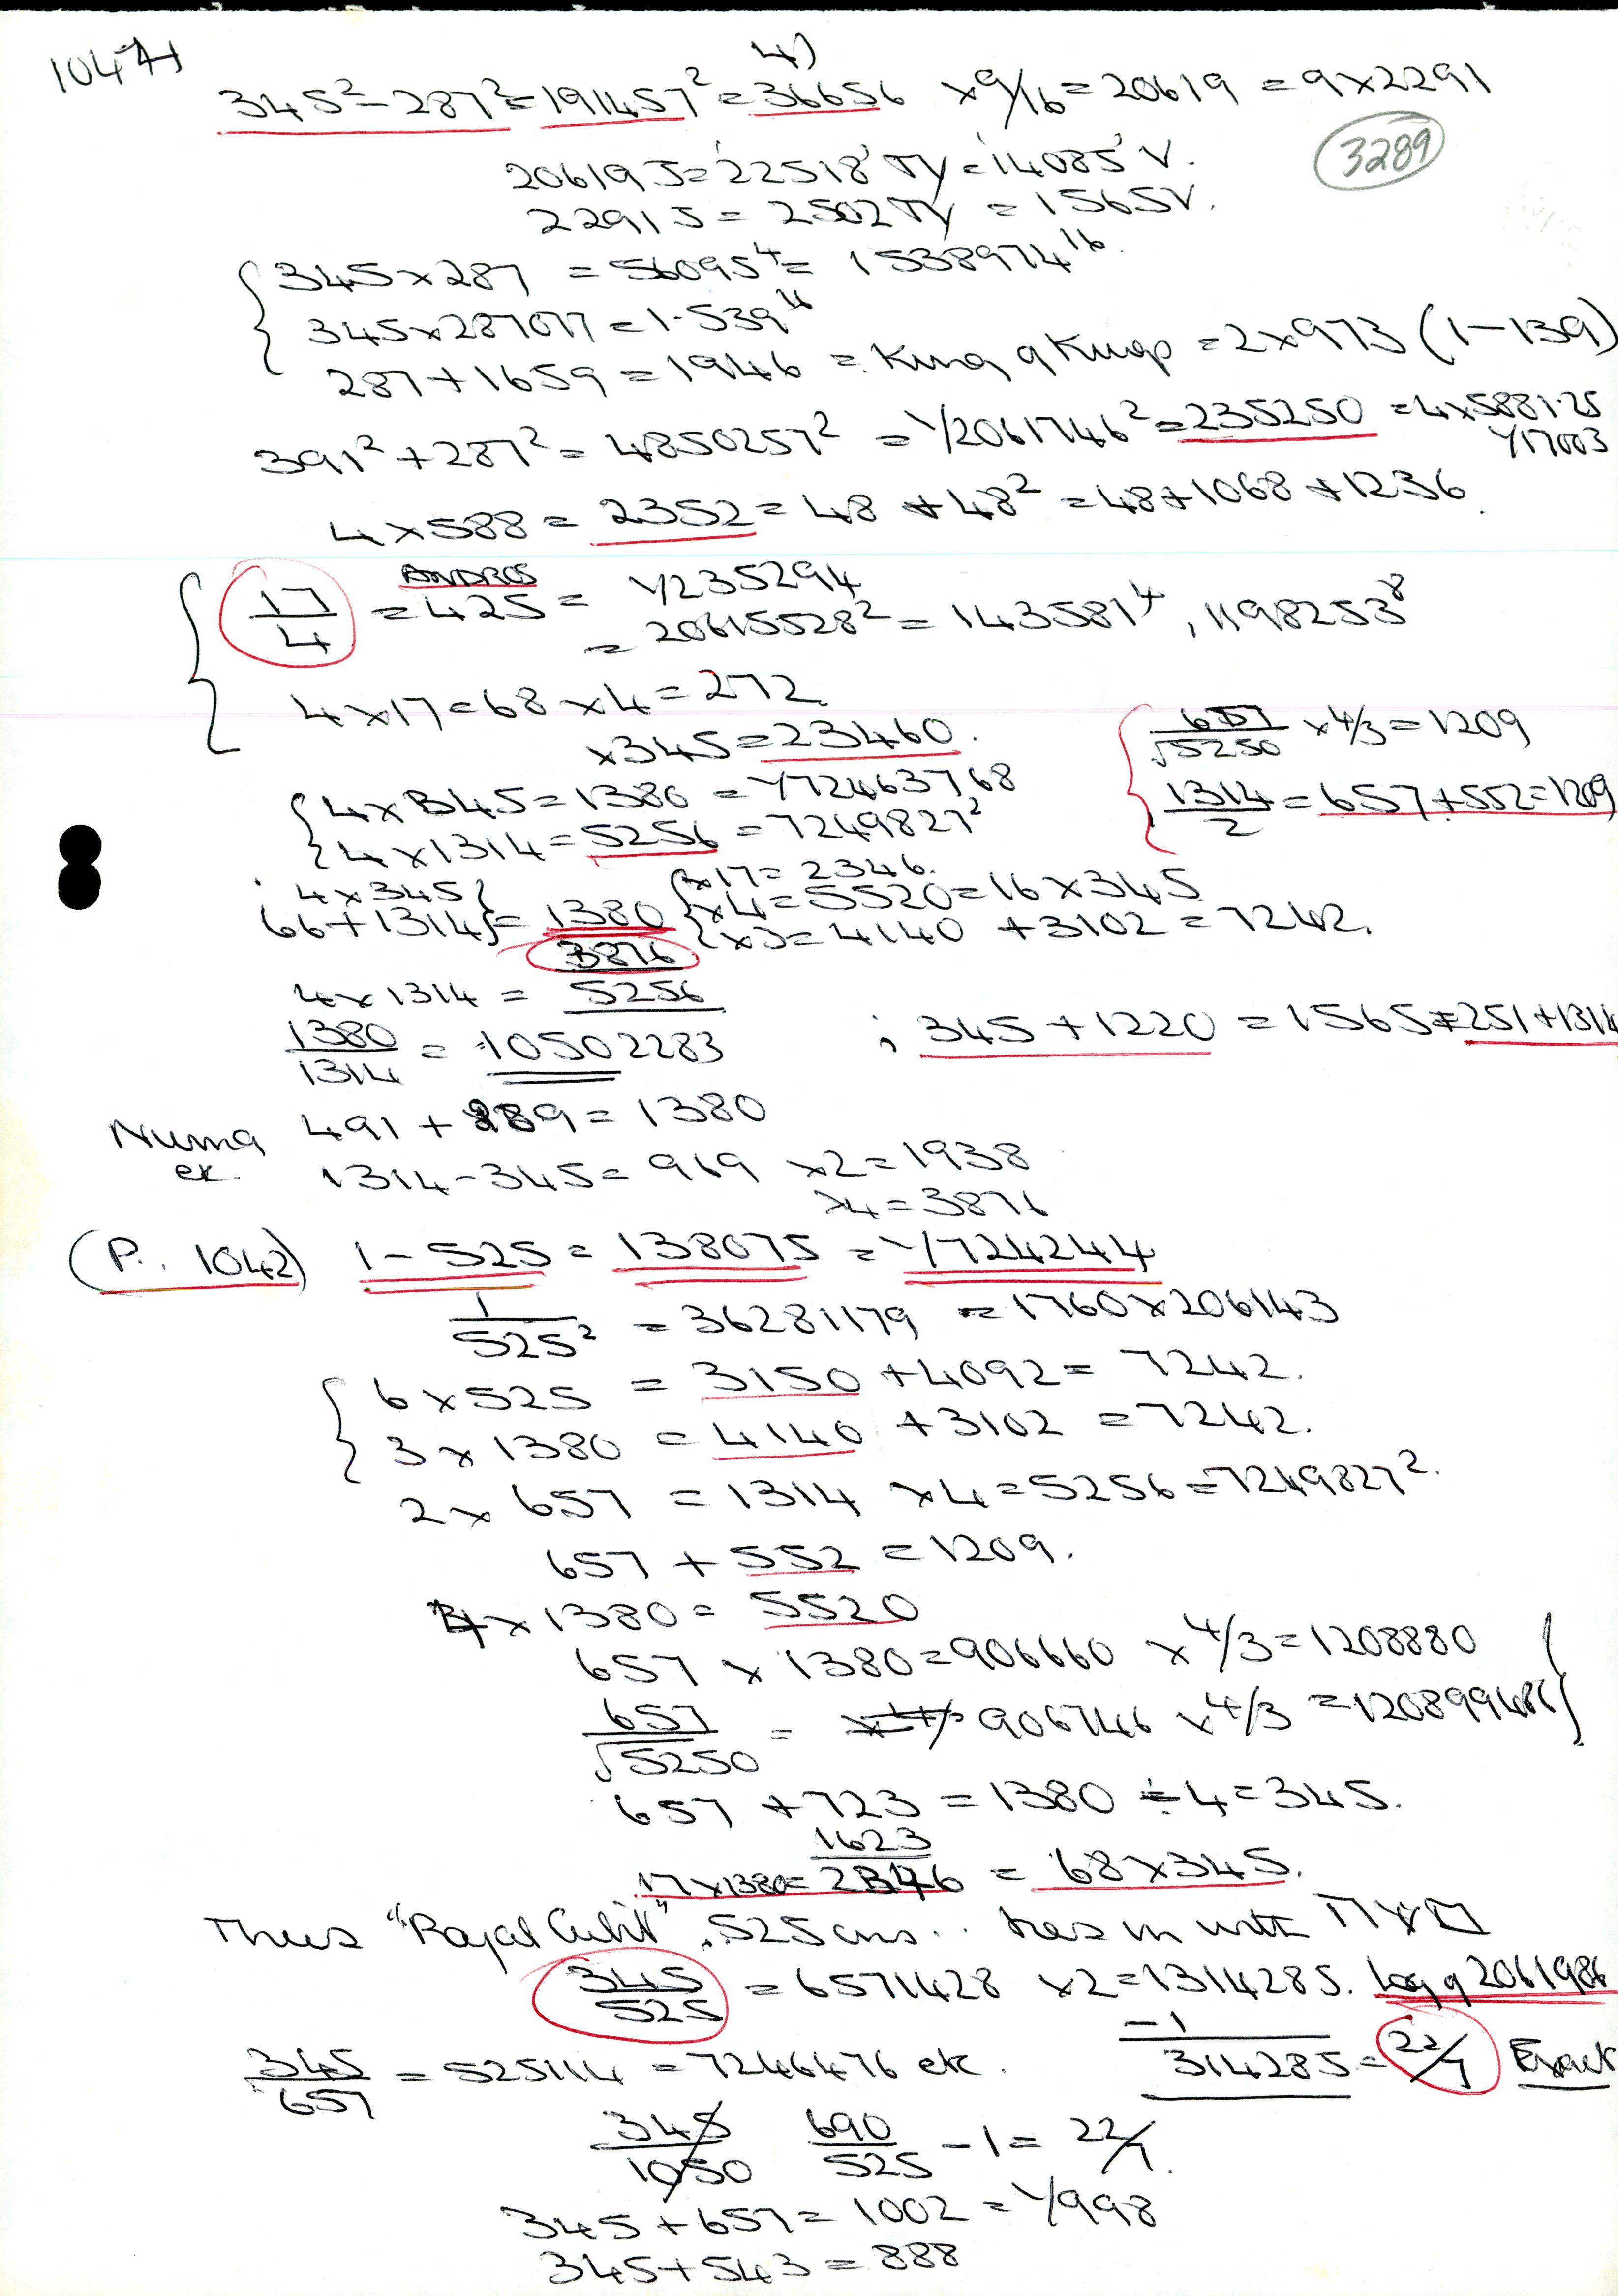 1047A
4)
345² - 287² = 191457² = 36656 × 9/16 = 20619 = 9 × 2291
3289
20619 J = 22518' TY = 14085' V.
2291 J = 2502 TY = 1565 V.
345 × 287 = 56095⁴ = 1538974¹⁶
345 × 287077 = 1.539⁴
287 + 1659 = 1946 = King of Kings = 2 × 973 (1 - 139)
391² + 287² = 4850257² = 1/2061746² = 235250 = 4 × 5881.25
1/17003
4 × 588 = 2352 = 48 + 48² = 48 + 1068 + 1236.
ANDROS
17/4 = 425 = 1/235294
= 20615528² = 143581⁴, 1198253⁸
4 × 17 = 68 × 4 = 272
× 345 = 23460.
657/√5250 × 4/3 = 1209
4 × 345 = 1380 = 1/72463768
1314/2 = 657 + 552 = 1209
4 × 1314 = 5256 = 7249827²
× 17 = 2346.
4 × 345
× 4 = 5520 = 16 × 345
66 + 1314 = 1380
× 3 = 4140 + 3102 = 7242.
3876
4 × 1314 = 5256
1380/1314 = 10502283
; 345 + 1220 = 1565 = 251 + 1314
Numa 491 + 889 = 1380
ex. 1314 - 345 = 969 × 2 = 1938
× 4 = 3876
(P. 1042) 1 - 525 = 138075 = 1/724244
1/525² = 36281179 = 1760 × 206143
6 × 525 = 3150 + 4092 = 7242.
3 × 1380 = 4140 + 3102 = 7242.
2 × 657 = 1314 × 4 = 5256 = 7249827².
657 + 552 = 1209.
4 × 1380 = 5520
657 × 1380 = 906660 × 4/3 = 1208880
657/√5250 = 906746 × 4/3 = 12089948
657 + 723 = 1380 ÷ 4 = 345.
1623
17 × 1380 = 2346 = 68 × 345.
Thus "Royal Cubit" .525 cms.. ties in with Π
345/525 = 6571428 × 2 = 1314285. Log of 2061986
- 1
345/657 = 525114 = 7246476 etc.
314285 = 22/7 Exact
345/1050 690/525 - 1 = 22/7.
345 + 657 = 1002 = 1/998
345 + 543 = 888